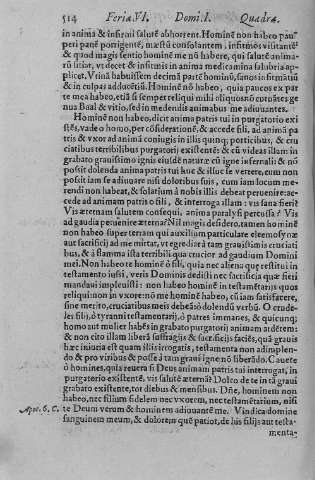 514 Feria. VI. Domi. I. Quadræ
in anima & infirmi salutē abhorrent. Hominē non habeo pau-
peri panē porrigentē, mæstū consolantem, infirmos visitantē
& quod magis sentio hominē mē nō habere, qui salutē anima-
rū sitiat, vt decet & infirmis in anima medicamina salubria ap-
plicet. Vtinā habuissem decimā partē hominū, sanos infirmātiū
& in culpas adducētiū. Hominē nō habeo, quia paucos ex par
te mea habeo, etiā si semper reliqui mihi oliquos nō curuātes ge
nua Baal & vitio, sed in medendis animabus me adiuuantes.
Hominē non habeo, dicit anima patris tui in purgatorio exi
stēs, vade o homo, per cōsiderationē, & accede fili, ad animā pa
tris & vxor ad animā coniugis in illis quinq; porticibus, & cru
ciatibus terribilibus purgatorij existentē: & cū videas illam in
grabato grauissimo ignis eiusdē naturæ cū igne infernali: & nō
possit dolenda anima patris tui huc & illuc se vertere, cum non
possit iam se adiuuare nisi doloribus suis, cum iam locum me-
rendi non habeat, & solatium à nobis illis debeat peruenire: ac-
cede ad animam patris o fili, & interroga illam: vis sana fieri?
Vis æternam salutem consequi, anima paralysi percussa? Vis
ad gaudia peruenire æterna? Nil magis desidero, tamen hominē
non habeo super terram qui auxilium particulare eleemosynæ
aut sacrificij ad me mittat, vt egrediar à tam grauissimis cruciati
bus, & à flamma ista terribili qua crucior ad gaudium Domini
mei. Non habeo te hominē ô fili, quia nec aliena quę restitui in
testamento iussi, veris Dominis dedisti nec sacrificia quæ fieri
mandaui impleuisti: non habeo hominē in testamētarijs quos
reliqui non in vxore: nō me hominē habeo, cū iam satisfacere,
sine merito, cruciatibus meis debeā sō dolendū verbū. O crude-
les filij, ô tyranni testamentarij, ô patres immanes, & quicunq;
homo aut mulier habēs in grabato purgatorij animam ardētem:
& non cito illam liberā suffragijs & sacrificijs facis, quā grauis
hæc iniuria est quam illis irrogatis, testamenta non adimplen-
do & pro viribus & posse à tam graui igne nō liberādo. Cauete
ô homines, quia reuera si Deus animam patris tui interrogat, in
purgatorio existentē, vis salutē æternā? Dolto de te in tā graui
grabato existente, tot diebus & mensibus. Dñe, hominem non
habeo, nec filium fidelem nec vxorem, nec testamētarium, nisi
Apoc. 6. C. te Deum verum & hominem adiuuantē me. Vindica domine
sanguinem meum, & dolorem quē patior, de his filijs aut testa-
menta-